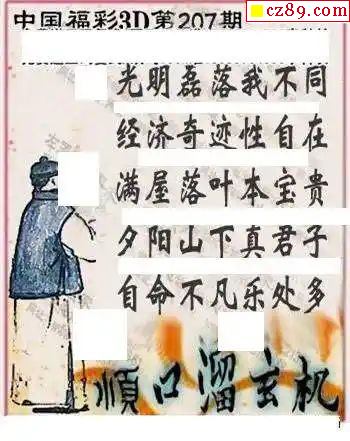 cz89.com
中国福彩3D第207期
光明磊落我不同
经济奇迹性自在
满屋落叶本宝贵
夕阳山下真君子
自命不凡乐处多
順口溜玄机